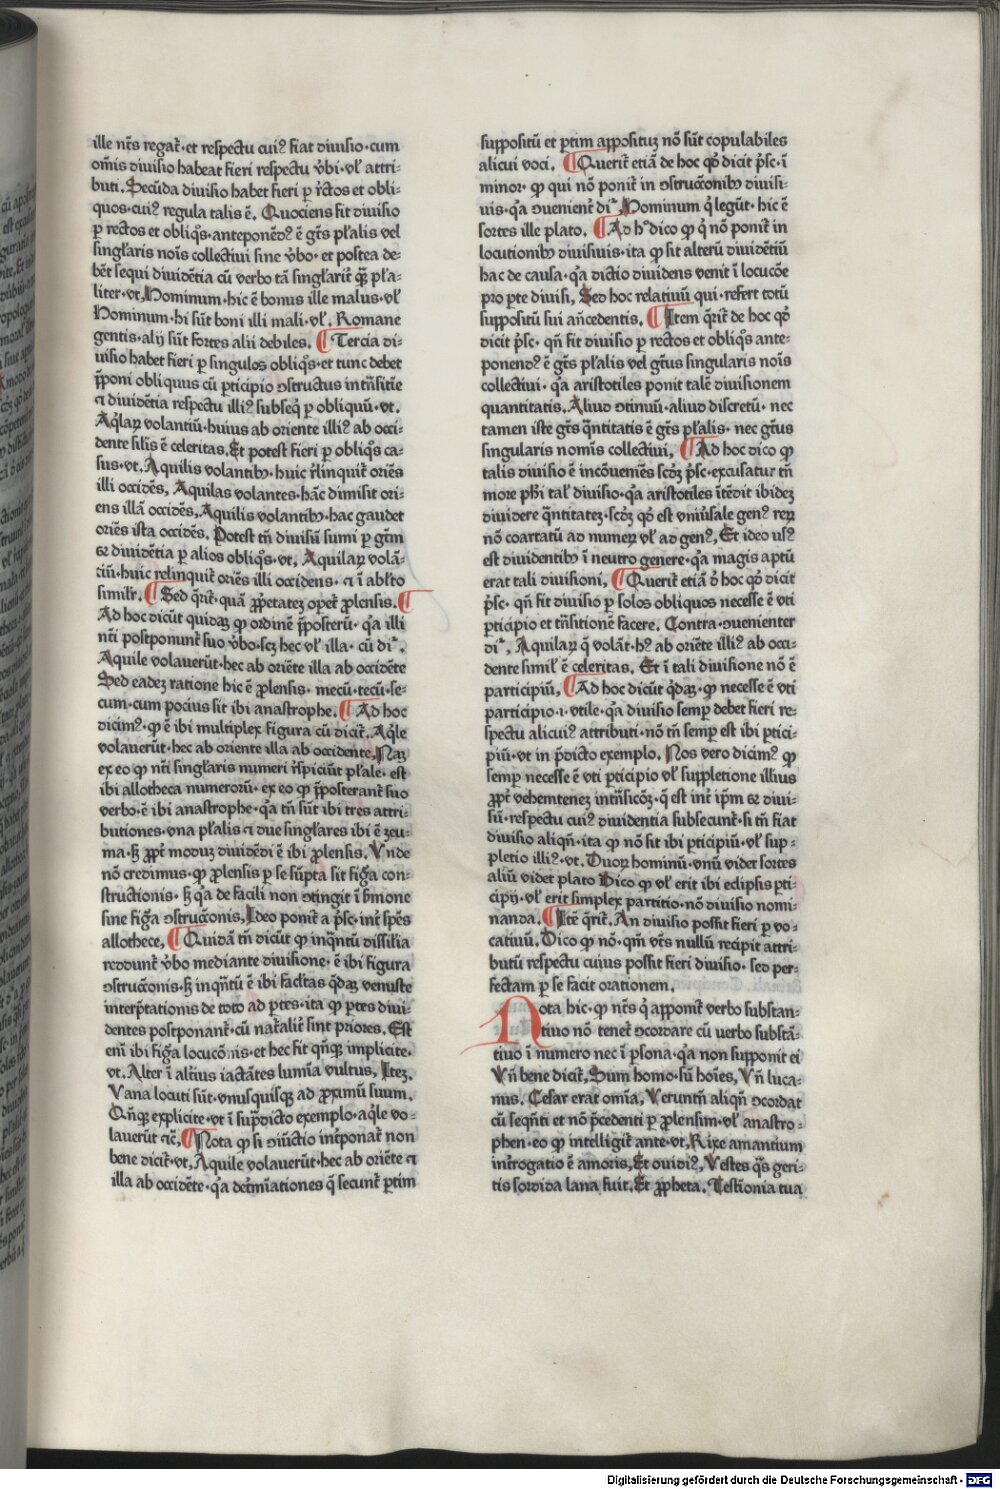 ille nt̄s regat᷑·et respectu cui⁹ fiat diuisio·cum
om̄is diuisio habeat fieri respectu v̄bi·vl̕ attri-
buti. Secūda diuisio habet fieri ꝑ rc̄tos et obli-
quos·cui⁹ regula talis ē. Quociens fit diuisio
ꝑ rectos et obliq̄s·anteponēd⁹ ē gt̄s pl̄alis vel
singl̄aris nōis collectiui sine v̄bo·et postea de-
bēt sequi diuidētia cū verbo tā singl̄arit᷑ qͣ̄ꝫ pl̄a-
liter·vt, Hominum·hic ē bonus ille malus·vl̕
Hominum·hi sūt boni illi mali·vl̕. Romane
gentis·alij sūt fortes alii debiles. ¶ Tercia di-
uisio habet fieri ꝑ singulos obliq̄s·et tunc debet
p̄poni obliquus cū ꝑticipio ꝯstructus intn̄sitie
⁊ diuidētia respectu illi⁹ subseq̄ ꝑ obliquū·vt.
Aq̄laꝝ volantiū·huius ab oriente illi⁹ ab occi-
dente sil̄is ē celeritas, Et potest fieri ꝑ obliq̄s ca-
sus·vt, Aquilis volantibꝰ·huic r̄linquit oriēs
illi occidēs, Aquilas volantes·hāc dimisit ori-
ens illā occidēs, Aquilis volantibꝰ·hac gaudet
oriēs ista occidēs. Potest tn̄ diuisū sumi ꝑ gt̄m
sꝫ diuidētia ꝑ alios obliq̄s·vt. Aquilaꝝ volā-
ciū·huic relinquit oriēs illi occidens·⁊ ī abl̄to
similr̄. ¶ Sed q̄rit᷑·quā ꝓp̄etateꝫ opet᷑ ꝓlensis. ¶
Ad hoc dicūt quidaꝫ ꝙ ordinē p̄posterū·qͣ illi
nt̄i postponunt᷑ suo v̄bo·scꝫ hec vl̕ illa·cū diͬ.
Aquile volauerūt·hec ab oriēte illa ab occidēte
Sed eadeꝫ ratione hic ē ꝓlensis·mecū·tecū·se-
cum·cum pocius sit ibi anastrophe. ¶ Ad hoc
dicim⁹·ꝙ ē ibi multiplex figura cū dicit᷑. Aq̄le
volauerūt·hec ab oriente illa ab occidente, Naꝫ
ex eo ꝙ nt̄i singl̄aris numeri r̄spiciūt pl̄ale·est
ibi allotheca numerorū·ex eo ꝙ p̄posterant᷑ suo
verbo·ē ibi anastrophe·qͣ tn̄ sūt ibi tres attri-
butiones·vna pl̄alis ⁊ due singl̄ares ibi ē zeu-
ma·sꝫ ꝓpt᷑ moduꝫ diuidēdi ē ibi ꝓlensis. Vnde
nō credimus·ꝙ ꝓlensis ꝑ se sūpta sit fig̃a con-
structionis·sꝫ qͣ de facili non ꝯtingit ī ẜmone
sine fig̃a ꝯstruccōnis, Ideo ponit᷑ a p̄sc·int᷑ sp̄es
allothece, ¶ Quidā tn̄ dicūt ꝙ inq̄ntū dissil̄ia
reddunt᷑ v̄bo mediante diuisione·ē ibi figura
ꝯstruccōnis·sꝫ inq̄ntū ē ibi facl̄tas q̄daꝫ venuste
interp̄tationis de toto ad ꝑtes·ita ꝙ ꝑtes diui-
dentes postponant᷑·cū nat᷑alit᷑ sint priores. Est
enī ibi fig̃a locucōnis·et hec fit qn̄qꝫ implicite·
vt. Alter ī alt̕ius iactātes lumīa vultus, Iteꝫ.
Vana locuti sūt·vnusquisqꝫ ad ꝓximū suum.
Qn̄qꝫ explicite·vt ī sup̄dicto exemplo·aq̄le vo-
lauerūt ⁊c̄, ¶ Nota ꝙ si ꝯiūctio int̕ponat᷑ non
bene dicit᷑·vt, Aquile volauerūt·hec ab oriēte ⁊
illa ab occidēte·qͣ det̕mīationes q̄ secunt᷑ ꝑtim
suppositū et ꝑtim appositūꝫ nō sūt copulabiles
alicui voci. ¶ Querit᷑ etiā de hoc qd̕ dicit p̄sc·ī
minor·ꝙ qui nō ponit᷑ in ꝯstruccōnibꝰ diuisi-
uis·qͣ ꝯuenient᷑ diͬ, Hominum q̄ legūt·hic ē
sortes ille plato. ¶ Ad hͦ dico ꝙ q̄ nō ponit᷑ in
locutionibꝰ diuisiuis·ita ꝙ sit alterū diuidētiū
hac de causa·qͣ dictio diuidens venit ī locucōe
pro ꝑte diuisi, Sed hoc relatiuū qui·refert totū
suppositū sui an̄cedentis. ¶ Item q̄rit᷑ de hoc qd̕
dicit p̄sc·qn̄ fit diuisio ꝑ rectos et obliq̄s ante-
ponend⁹ ē gt̄s pl̄alis vel gt̄us singularis nōis
collectiui·qͣ aristotiles ponit talē diuisionem
quantitatis. Aliud ꝯtinuū·aliud discretū·nec
tamen iste gt̄s q̄ntitatis ē gt̄s pl̄alis·nec gt̄us
singularis nomīs collectiui, ¶ Ad hoc dico ꝙ
talis diuisio ē incōueniēs scd̕ꝫ p̄sc·excusatur tn̄
more ph̄i tal̕ diuisio·qͣ aristotiles ītēdit ibideꝫ
diuidere q̄ntitateꝫ·scd̕ꝫ qd̕ est vniūsale gen⁹ reꝝ
nō coartatū ad numeꝝ vl̕ ad gen⁹, Et ideo vs⁹
est diuidentibꝰ ī neutro genere·qͣ magis aptū
erat tali diuisioni, ¶ Querit᷑ etiā d̕ hoc qd̕ dicit
p̄sc·qn̄ fit diuisio ꝑ solos obliquos necesse ē vti
ꝑticipio et tn̄sitionē facere. Contra·ꝯuenienter
diͬ, Aquilaꝝ q̄ volāt·h⁹ ab oriēte illi⁹ ab occi-
dente simil̕ ē celeritas. Et ī tali diuisione nō ē
participiū, ¶ Ad hoc dicūt q̄daꝫ·ꝙ necesse ē vti
participio·i·vtile·qͣ diuisio semꝑ debet fieri re-
spectu alicui⁹ attributi·nō tn̄ semꝑ est ibi ꝑtici-
piū·vt in p̄dicto exemplo. Nos vero dicim⁹ ꝙ
semꝑ necesse ē vti ꝑticipio vl̕ suppletione illius
ꝓpt᷑ vehemteneꝫ intn̄sicōꝫ·q̄ est int᷑ ip̄m sꝫ diui-
sū·respectu cui⁹ diuidentia subsecunt᷑·si tn̄ fiat
diuisio aliqn̄·ita ꝙ nō sit ibi ꝑticipiū·vl̕ sup-
pletio illi⁹·vt. Duoꝝ hominū·vnū videt sortes
aliū videt plato Dico ꝙ vl̕ erit ibi eclipsis ꝑti-
cipij·vl̕ erit simplex partitio·nō diuisio nomi-
nanda. ¶ Itē q̄rit᷑. An diuisio possit fieri ꝑ vo-
catiuū. Dico ꝙ nō·qm̄ vt̄s nullū recipit attri-
butū respectu cuius possit fieri diuisio·sed per-
fectam ꝑ se facit orationem.
Nota hic·ꝙ nt̄s q̄ apponit᷑ verbo substan-
tiuo nō tenet᷑ ꝯcordare cū verbo substā-
tiuo ī numero nec ī ꝑsona·qͣ non supponit ei
Vn̄ bene dicit᷑, Sum homo·sū hoīes, Vn̄ luca-
nus. Cesar erat omīa, Verunt̄n aliqn̄ ꝯcordat
cū seq̄nti et nō p̄cedenti ꝑ ꝓlensim·vl̕ anastro-
phen·eo ꝙ intelligit᷑ ante·vt, Rixe amantium
int̕rogatio ē amoris, Et ouidi⁹, Vestes q̄s geri-
tis sordida lana fuit. Et ꝓpheta. Testīonia tua
Digitalisierung gefördert durch die Deutsche Forschungsgemeinschaft - DFG